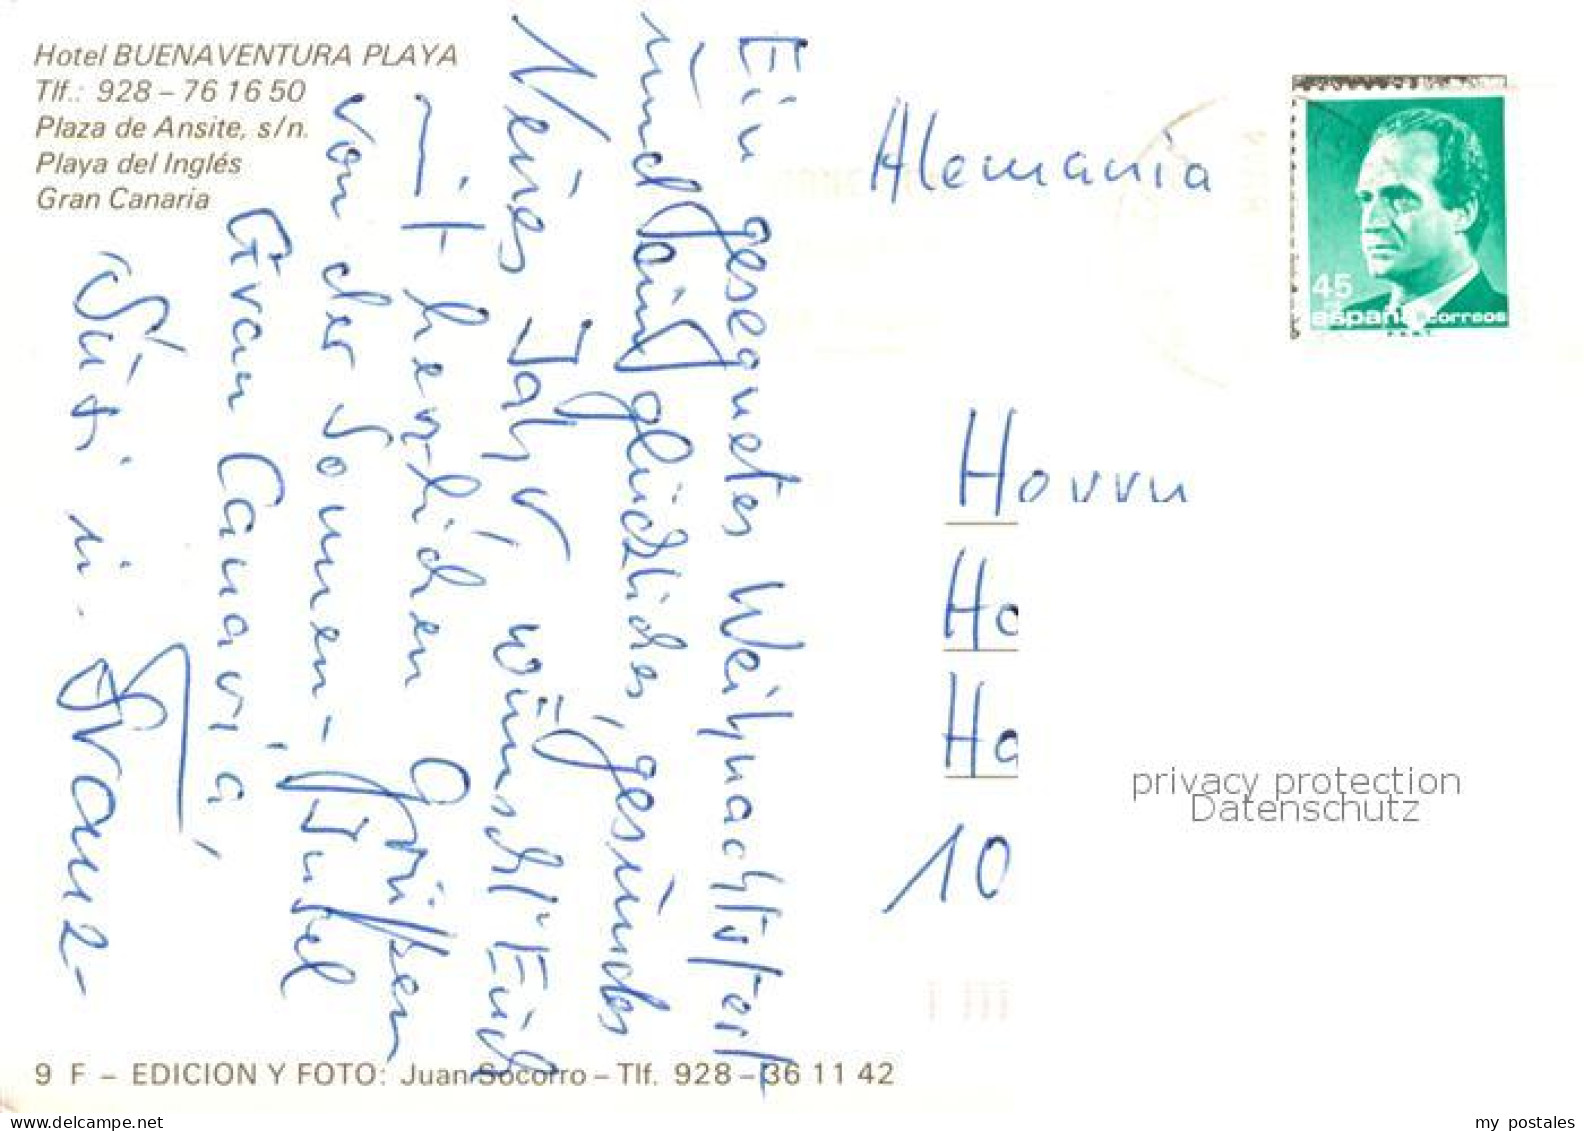 Hotel BUENAVENTURA PLAYA
Tlf.: 928 – 76 16 50
Plaza de Ansite, s/n.
Playa del Inglés
Gran Canaria
Ein gesegnetes Weihnachtsfest
und ein glückliches, gesundes
Neues Jahr, wünscht Euch
mit herzlichen Grüßen
von der Sonnen-Insel
Gran Canaria,
Franz-
Alemania
45
españa correos
Herrn
Ho
Ha
10
privacy protection
Datenschutz
9 F – EDICION Y FOTO: Juan Socorro – Tlf. 928 – 36 11 42
www.delcampe.net
my postales